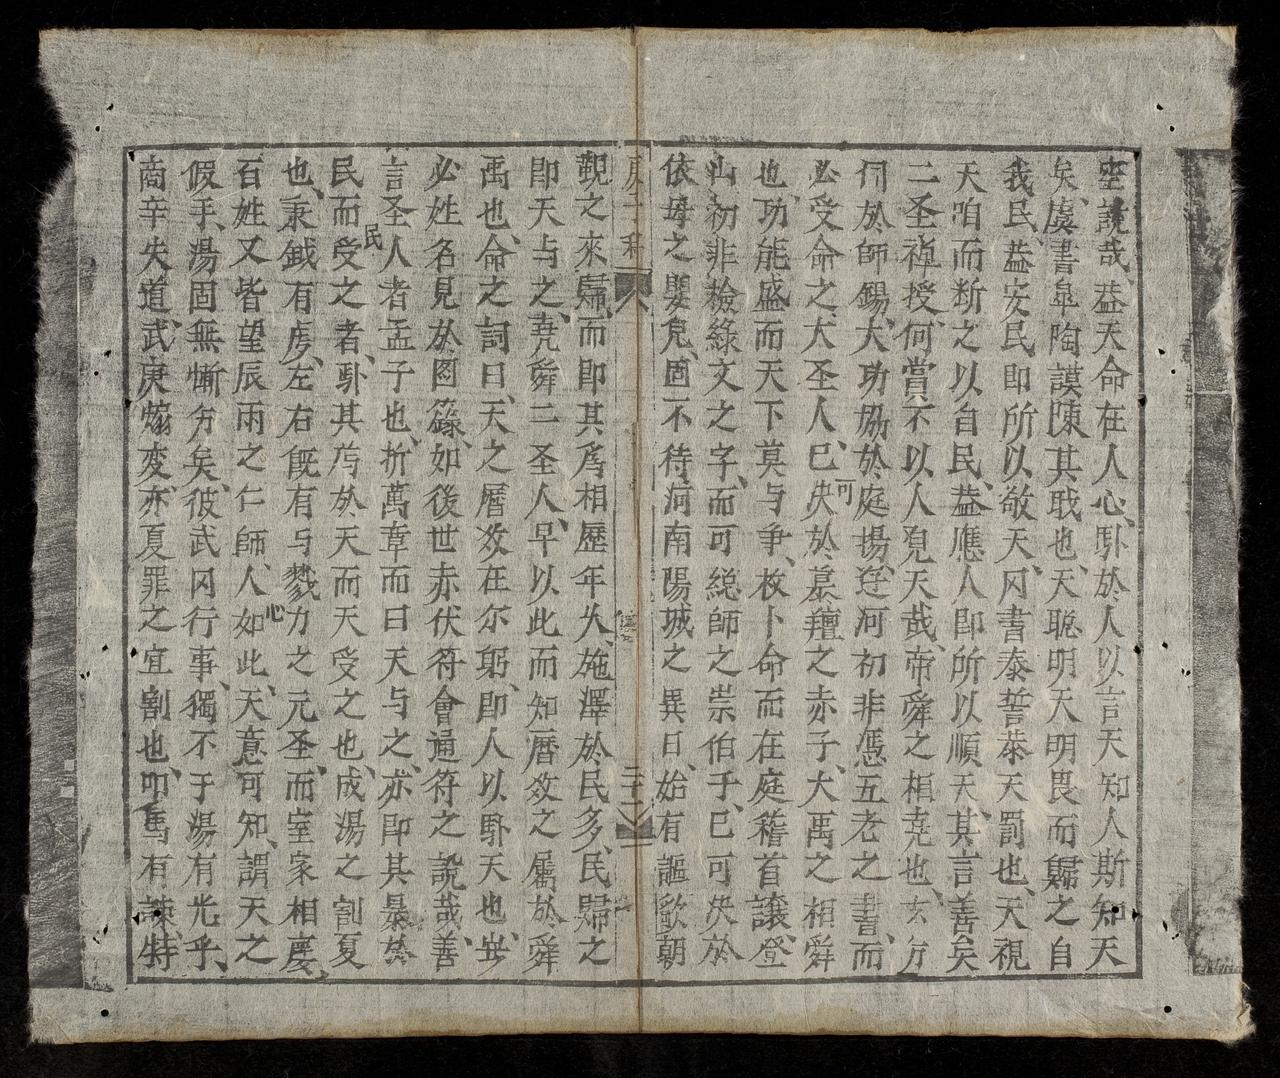 空説哉、蓋天命在人心、卧於人以言天知人斯知天
矣、虞書皐陶謨陳其戢也、天聡明天明畏而歸之自
我民、蓋安民即所以敬天、冈書泰誓恭天罰也、天視
天咱而断之以自民、蓋應人即所以順天、其言善矣
二圣禅授、何賞不以人皃天哉、帝舜之相尭也、玄方
何於師錫、大功協於庭揚、迬河初非憑五老之書、而
必受命之大圣人、已可决於慕羶之赤子、大禹之相舜
也、功能盛而天下莫与爭、枚卜命而在庭稽首譲、登
山初非檢綠文之字、而可総師之崇伯手、已可决於
依母之嬰兒、固不待河南陽城之異日、始有謳歌朝
三十二
覲之來歸、而即其爲相歷年久、施澤於民多、民歸之
即天与之、尭舜二圣人、早以此而知暦效之屬於舜
禹也、命之詞曰、天之暦效在尔躬、即人以卧天也、安
必姓名見於图籙、如後世赤伏符會通符之説哉、善
言圣人者孟子也、折萬章而曰天与之、亦即其暴於
民而民受之者、卧其荐於天而天受之也、成湯之割夏
也、秉鉞有虔、左右既有与戮力之元圣、而室家相慶、
百姓又皆望辰雨之仁師、人心如此、天意可知、謂天之
假手、湯固無慚方矣、彼武冈行事、獨不于湯有光乎、
商辛失道、武庚煽变、亦夏罪之宜割也、叩馬有諫、特